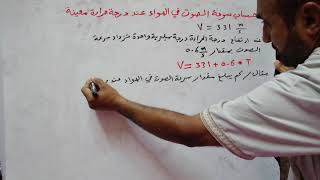 حساب سرعة الصوت في الهواء عند درجة حرارة معينة
V = 331 m/s
عند ارتفاع درجة الحرارة درجة سيليزية واحدة تزداد سرعة
الصوت بمقدار 0.6 m/s
V = 331 + 0.6 * T
مثال / كم يبلغ مقدار سرعة الصوت في الهواء عند